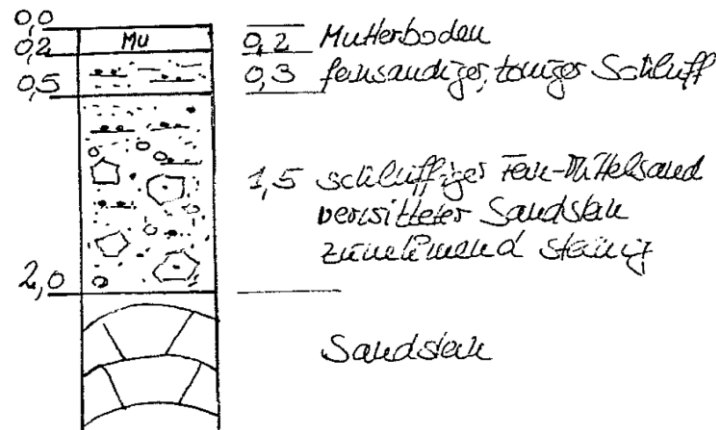 0,0
Mu
0,2 Mutterboden
0,2
0,3 feinsandiger, toniger Schluff
0,5
1,5 schluffiger Fein-Mittelsand
verwitterter Sandstein
zunehmend steinig
2,0
Sandstein